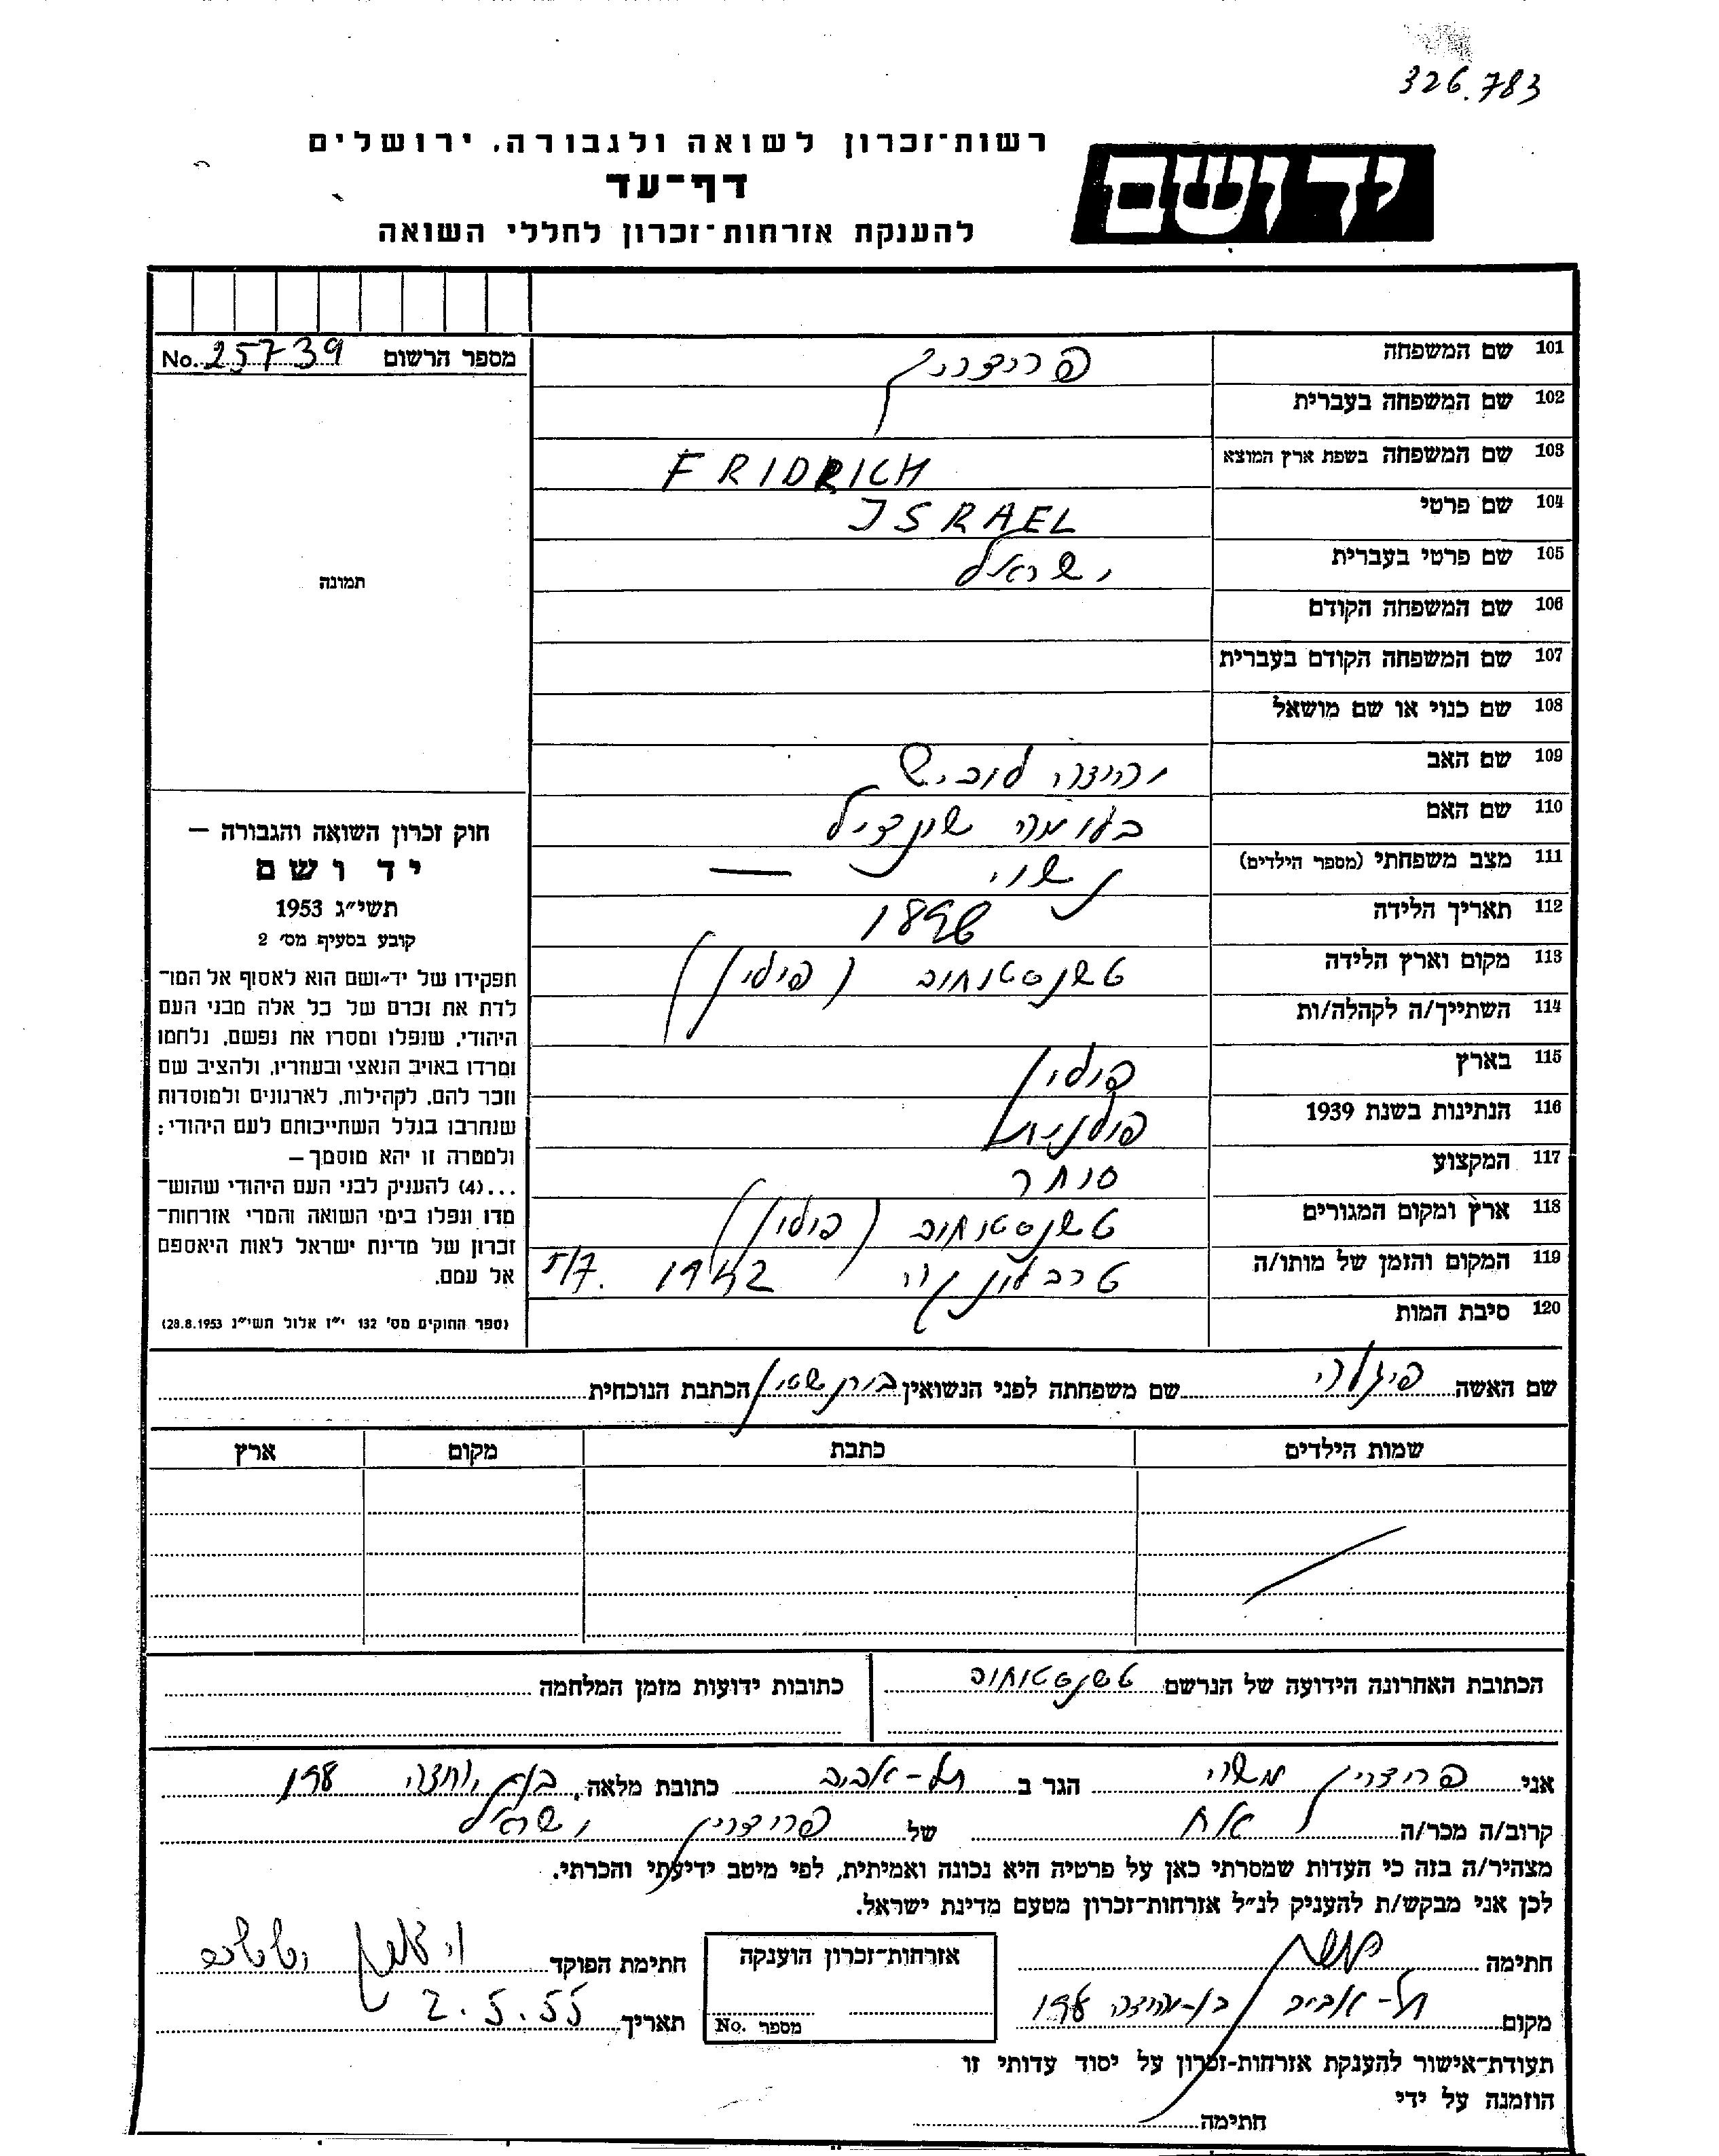 326.783
רשות־זכרון לשואה ולגבורה, ירושלים
יד ושם
דף־עד
להענקת אזרחות־זכרון לחללי השואה
מספר הרשום No. 25739
תמונה
חוק זכרון השואה והגבורה —
יד ושם
תשי״ג 1953
קובע בסעיף מס׳ 2
תפקידו של יד־ושם הוא לאסוף אל המו־
לדת את זכרם של כל אלה מבני העם
היהודי, שנפלו ומסרו את נפשם, נלחמו
ומרדו באויב הנאצי ובעוזריו, ולהציב שם
וזכר להם, לקהילות, לארגונים ולמוסדות
שנחרבו בגלל השתייכותם לעם היהודי;
ולמטרה זו יהא מוסמך —
...(4) להעניק לבני העם היהודי שהוש־
מדו ונפלו בימי השואה והמרי אזרחות־
זכרון של מדינת ישראל לאות היאספם
אל עמם.
(ספר החוקים מס׳ 132 י״ז אלול תשי״ג 28.8.1953)
101 שם המשפחה פרידריך
102 שם המשפחה בעברית
103 שם המשפחה בשפת ארץ המוצא FRIDRICH
104 שם פרטי ISRAEL
105 שם פרטי בעברית ישראל
106 שם המשפחה הקודם
107 שם המשפחה הקודם בעברית
108 שם כנוי או שם מושאל
109 שם האב יהודה לוביש
110 שם האם
111 מצב משפחתי (מספר הילדים) נשוי —
112 תאריך הלידה 1898
113 מקום וארץ הלידה טשנסטוחוב (פולין)
114 השתייך/ה לקהלה/ות
115 בארץ פולין
116 הנתינות בשנת 1939 פולנית
117 המקצוע סוחר
118 ארץ ומקום המגורים טשנסטוחוב (פולין)
119 המקום והזמן של מותו/ה טרבלינקה 1942
120 סיבת המות
שם האשה פיגלה שם משפחתה לפני הנשואין בורנשטין הכתבת הנוכחית
שמות הילדים כתבת מקום ארץ
הכתובת האחרונה הידועה של הנרשם טשנסטוחוב כתובות ידועות מזמן המלחמה
אני פרידריך משה הגר ב תל-אביב כתובת מלאה בן יהודה 198
קרוב/ה מכר/ה אח של פרידריך ישראל
מצהיר/ה בזה כי העדות שמסרתי כאן על פרטיה היא נכונה ואמיתית, לפי מיטב ידיעתי והכרתי.
לכן אני מבקש/ת להעניק לנ״ל אזרחות־זכרון מטעם מדינת ישראל.
חתימה אזרחות־זכרון הוענקה חתימת הפוקד
מקום תל-אביב בן-יהודה 198 מספר No. תאריך 2.5.55
תעודת־אישור להענקת אזרחות-זכרון על יסוד עדותי זו
הוזמנה על ידי
חתימה